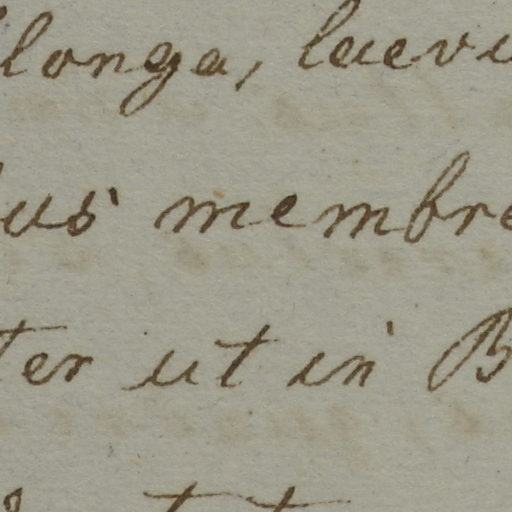 longa, laevi
us membre
ter ut in B